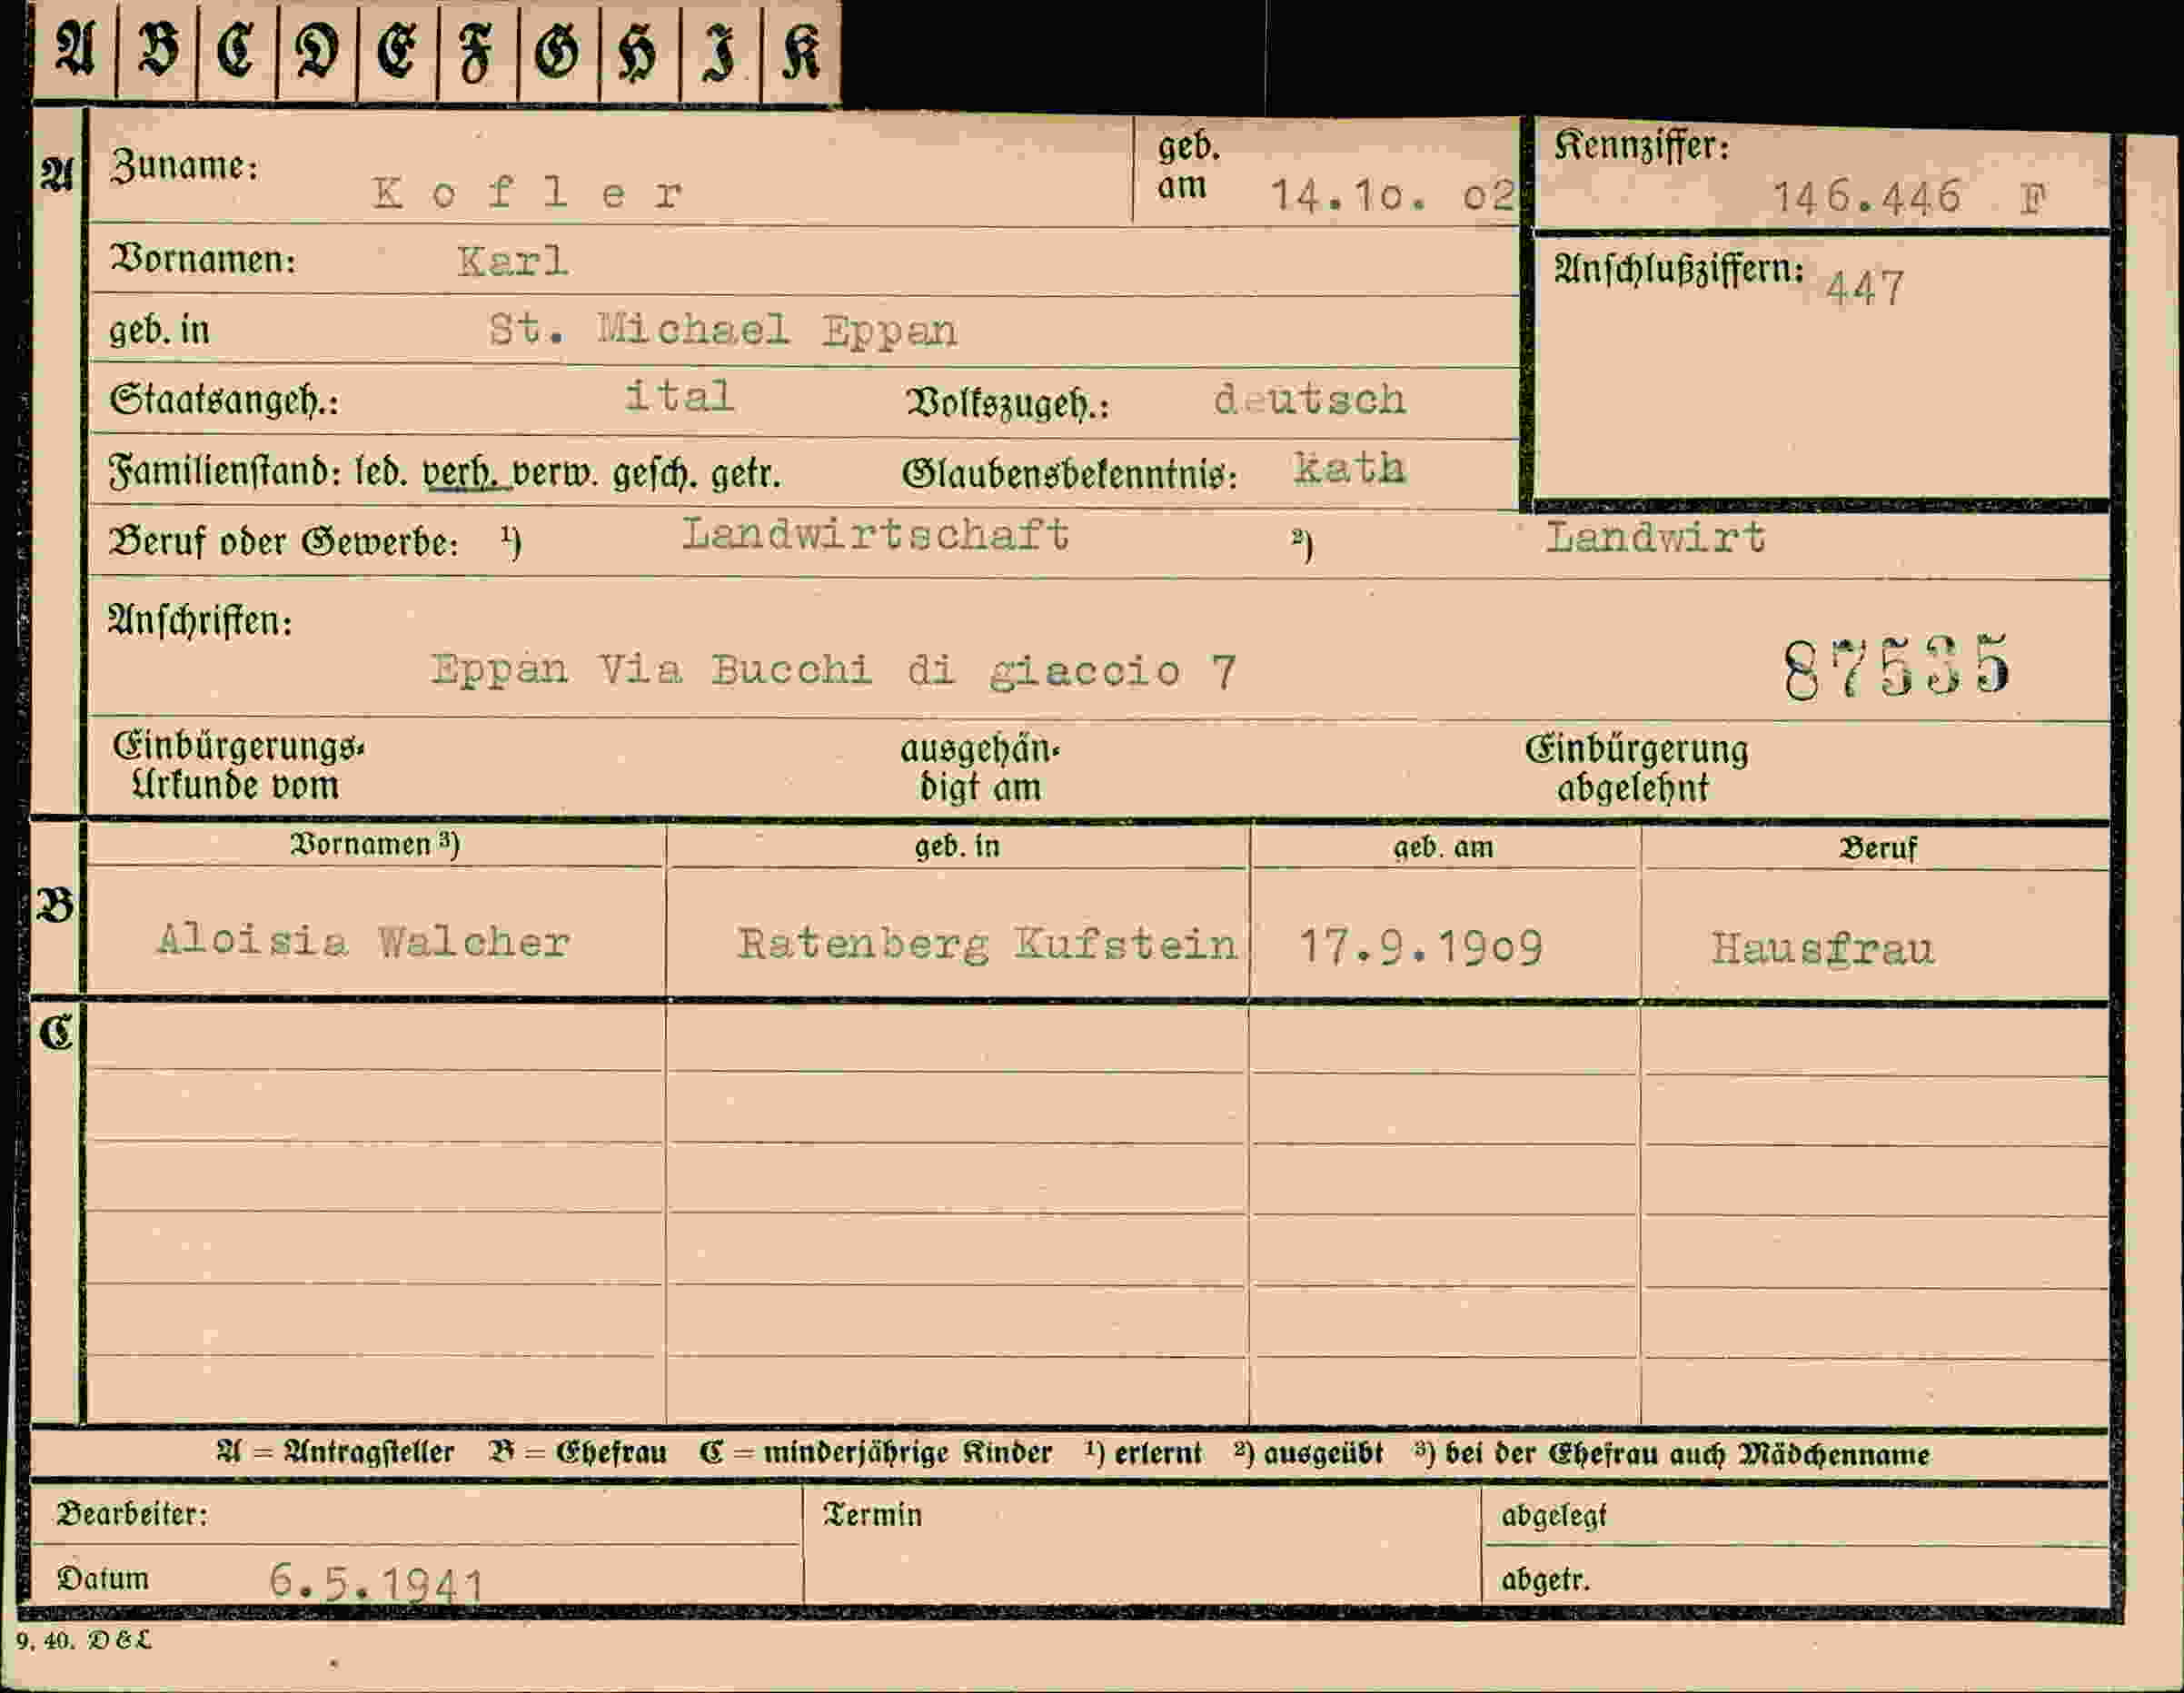 A B C D E F G H I K
A Zuname: Kofler geb. am 14.10. 02 Kennziffer: 146.446 F
Vornamen: Karl Anschlußziffern: 447
geb. in St. Michael Eppan
Staatsangeh.: ital Volkszugeh.: deutsch
Familienstand: led. verh. verw. gesch. getr. Glaubensbekenntnis: kath
Beruf oder Gewerbe: ¹) Landwirtschaft ²) Landwirt
Anschriften:
Eppan Via Bucchi di giaccio 7 87535
Einbürgerungs- ausgehän- Einbürgerung
Urkunde vom digt am abgelehnt
Vornamen ³) geb. in geb. am Beruf
B Aloisia Walcher Ratenberg Kufstein 17.9.1909 Hausfrau
C
A = Antragsteller B = Ehefrau C = minderjährige Kinder ¹) erlernt ²) ausgeübt ³) bei der Ehefrau auch Mädchenname
Bearbeiter: Termin abgelegt
Datum 6.5.1941 abgetr.
9. 40. D & L